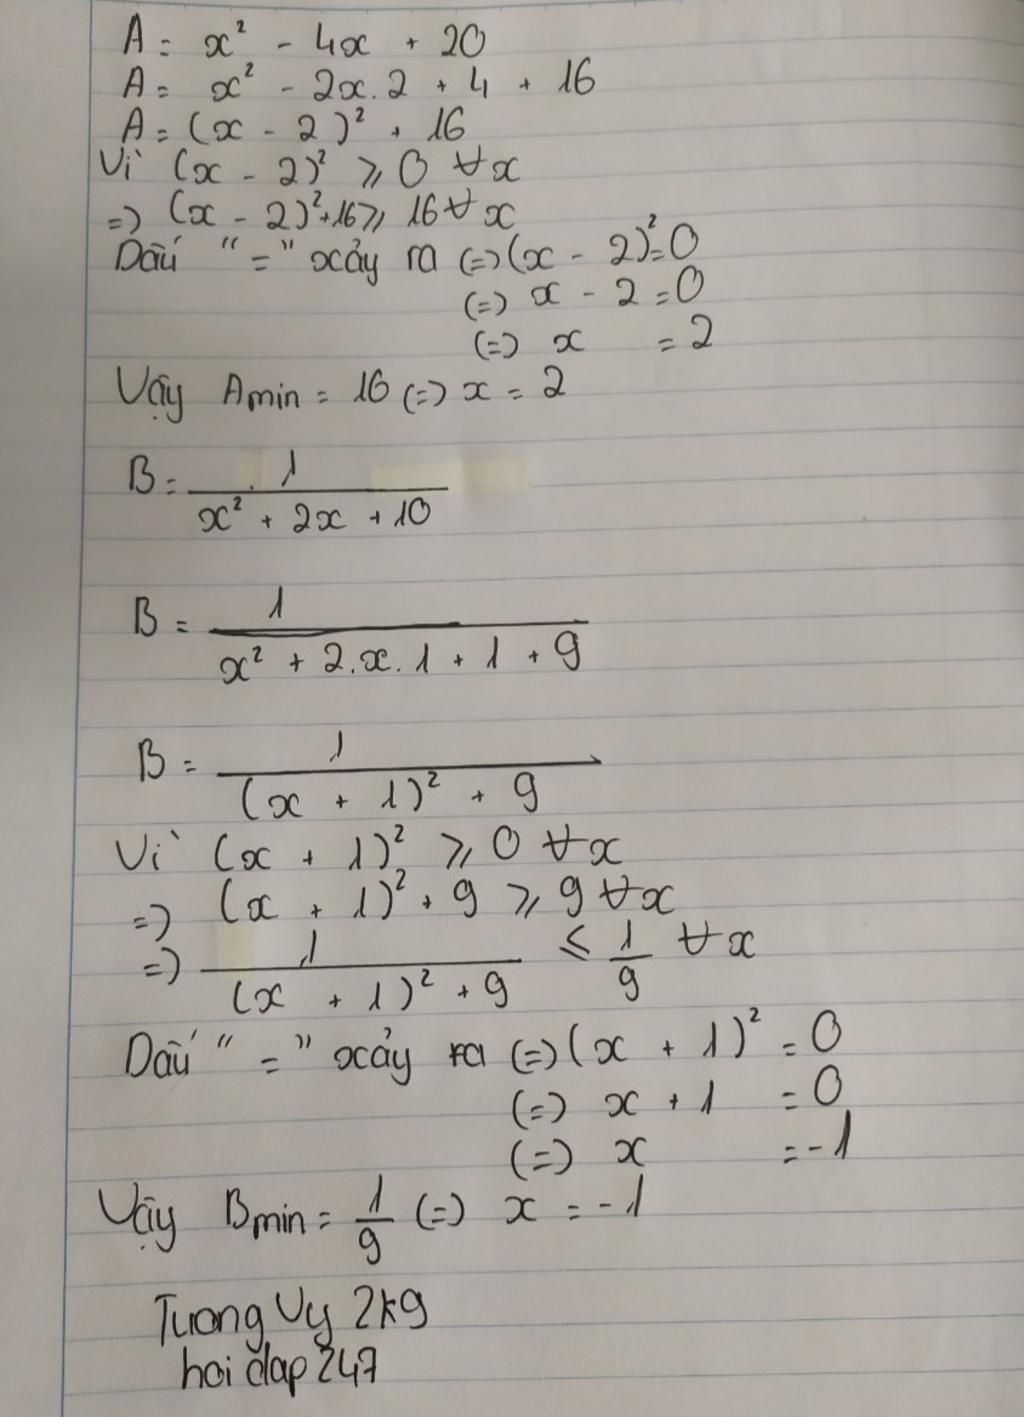 A = x² - 4x + 20
A = x² - 2x.2 + 4 + 16
A = (x - 2)² + 16
Vì (x - 2)² ⩾ 0 ∀x
=> (x - 2)²+16⩾ 16 ∀ x
Dấu "=" xảy ra (=) (x - 2)²=0
(=) x - 2 = 0
(=) x = 2
Vậy Amin = 16 (=) x = 2
B = 1 / (x² + 2x + 10)
B = 1 / (x² + 2.x.1 + 1 + 9)
B = 1 / ((x + 1)² + 9)
Vì (x + 1)² ⩾ 0 ∀x
=> (x + 1)² + 9 ⩾ 9 ∀x
=> 1 / ((x + 1)² + 9) ⩽ 1/9 ∀x
Dấu "=" xảy ra (=) (x + 1)² = 0
(=) x + 1 = 0
(=) x = -1
Vậy Bmin = 1/9 (=) x = -1
Tuong Vy 2k9
hoi dap 247